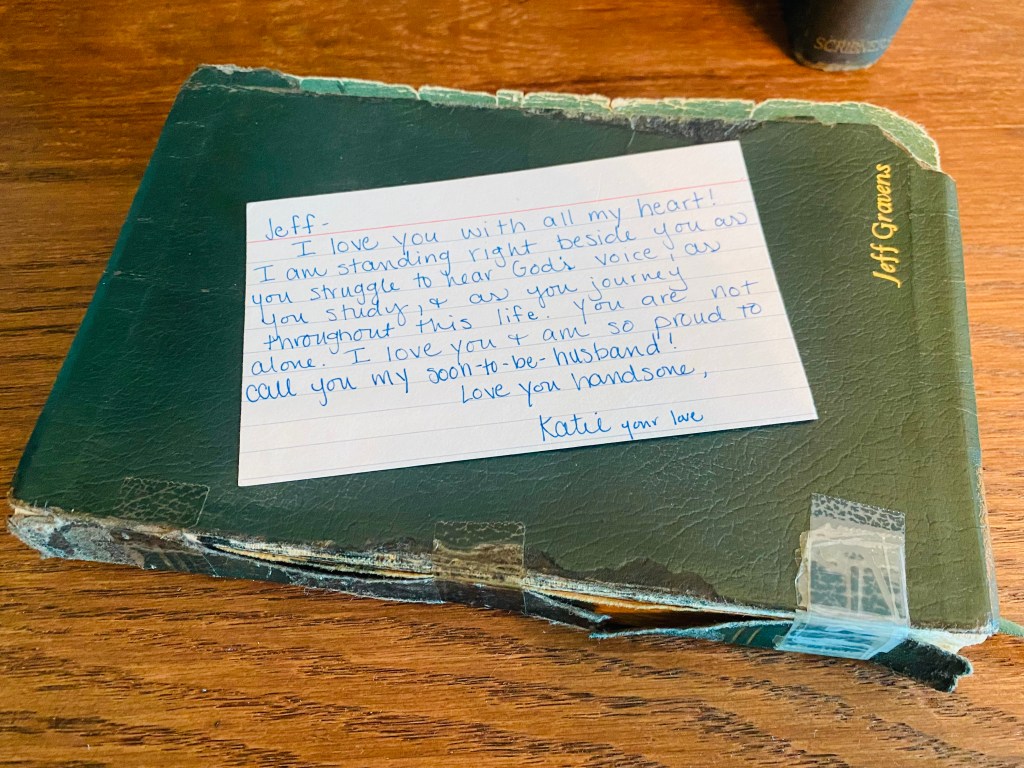 SCRIBNER
Jeff Gravens
Jeff-
I love you with all my heart!
I am standing right beside you as
you struggle to hear God's voice, as
you study, & as you journey
throughout this life. You are not
alone. I love you & am so proud to
call you my soon-to-be-husband!!
Love you handsone,
Katie your love